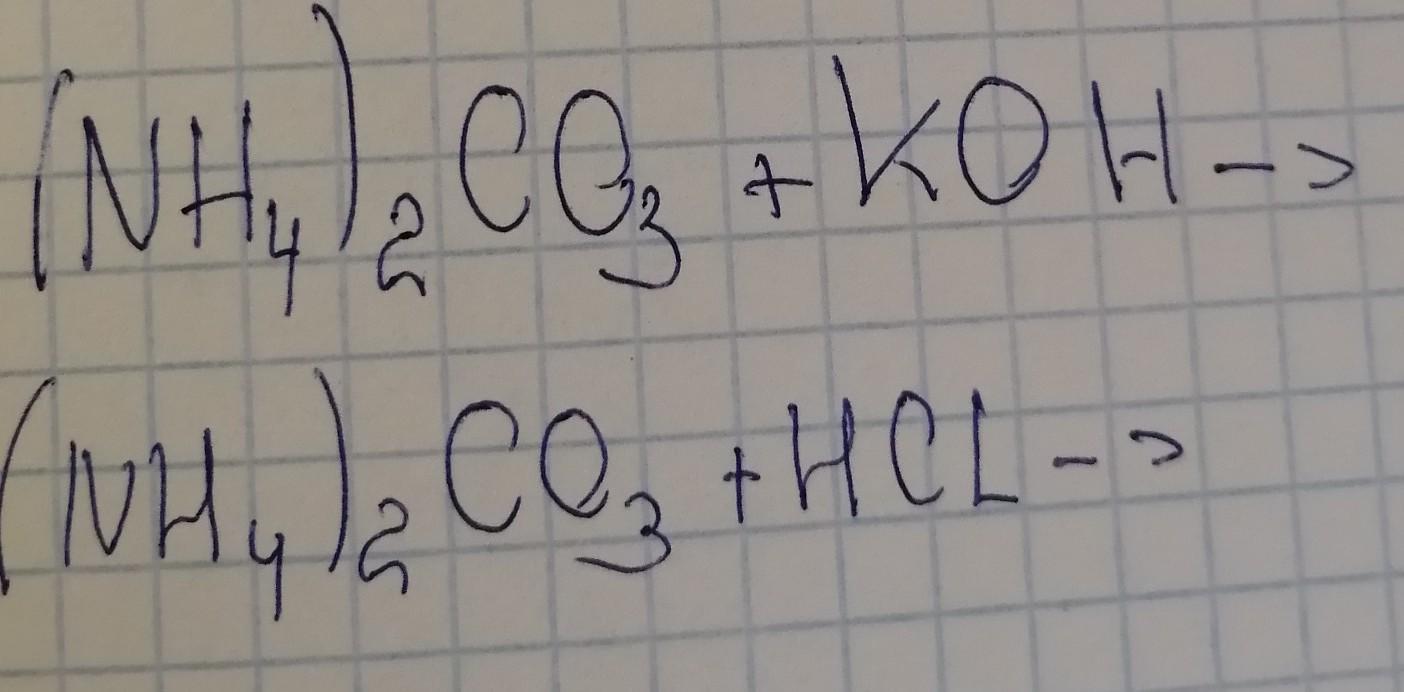 (NH₄)₂CO₃ + KOH ->
(NH₄)₂CO₃ + HCL ->